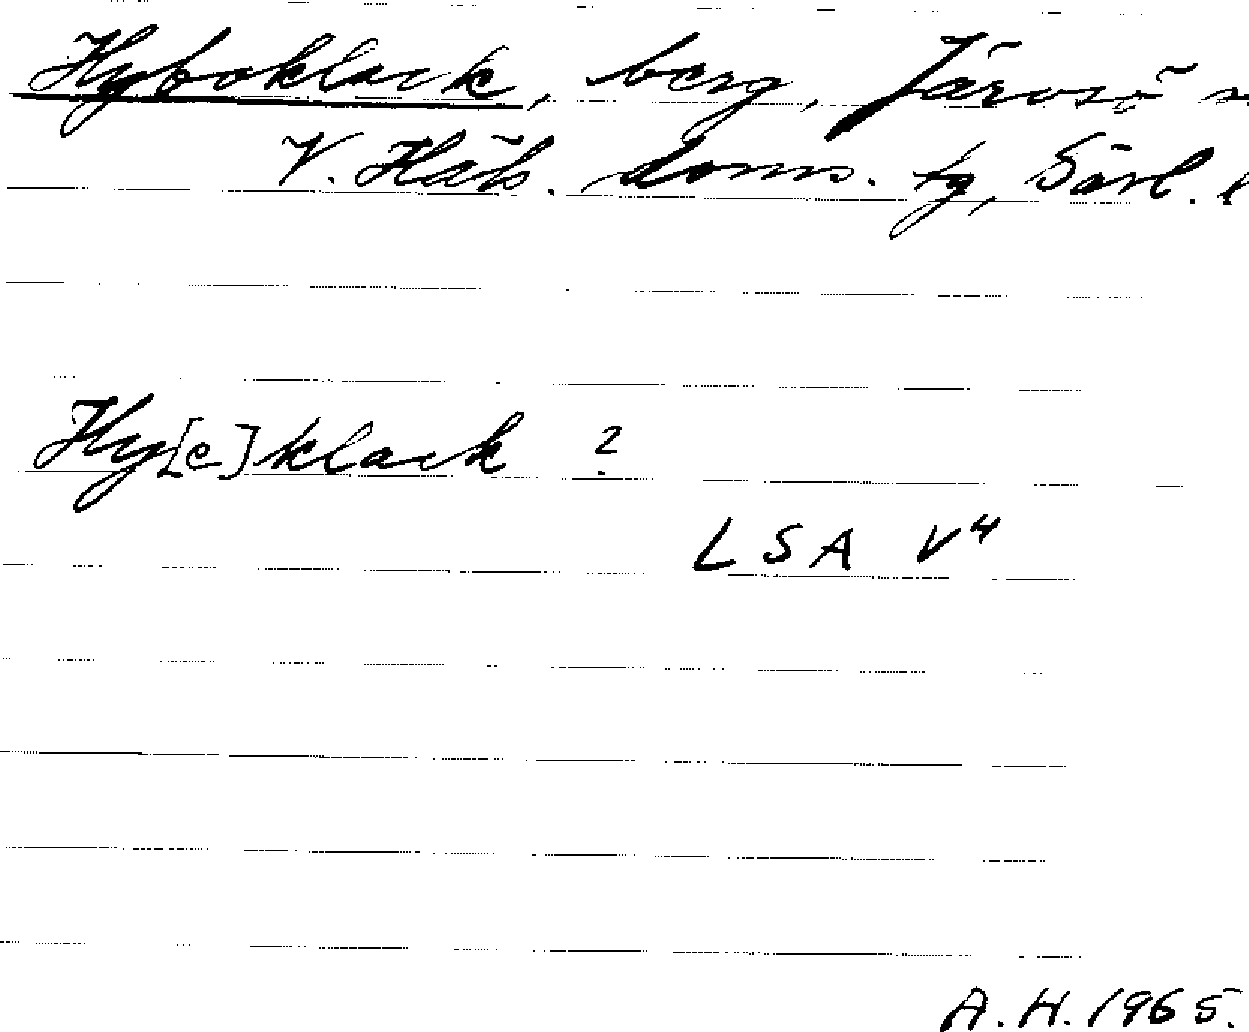 Hyboklack, berg, Järvsö
V. Häls. doms. tg, Gävl.
Hy[c]klack ?
LSA V4
A.H. 1965.